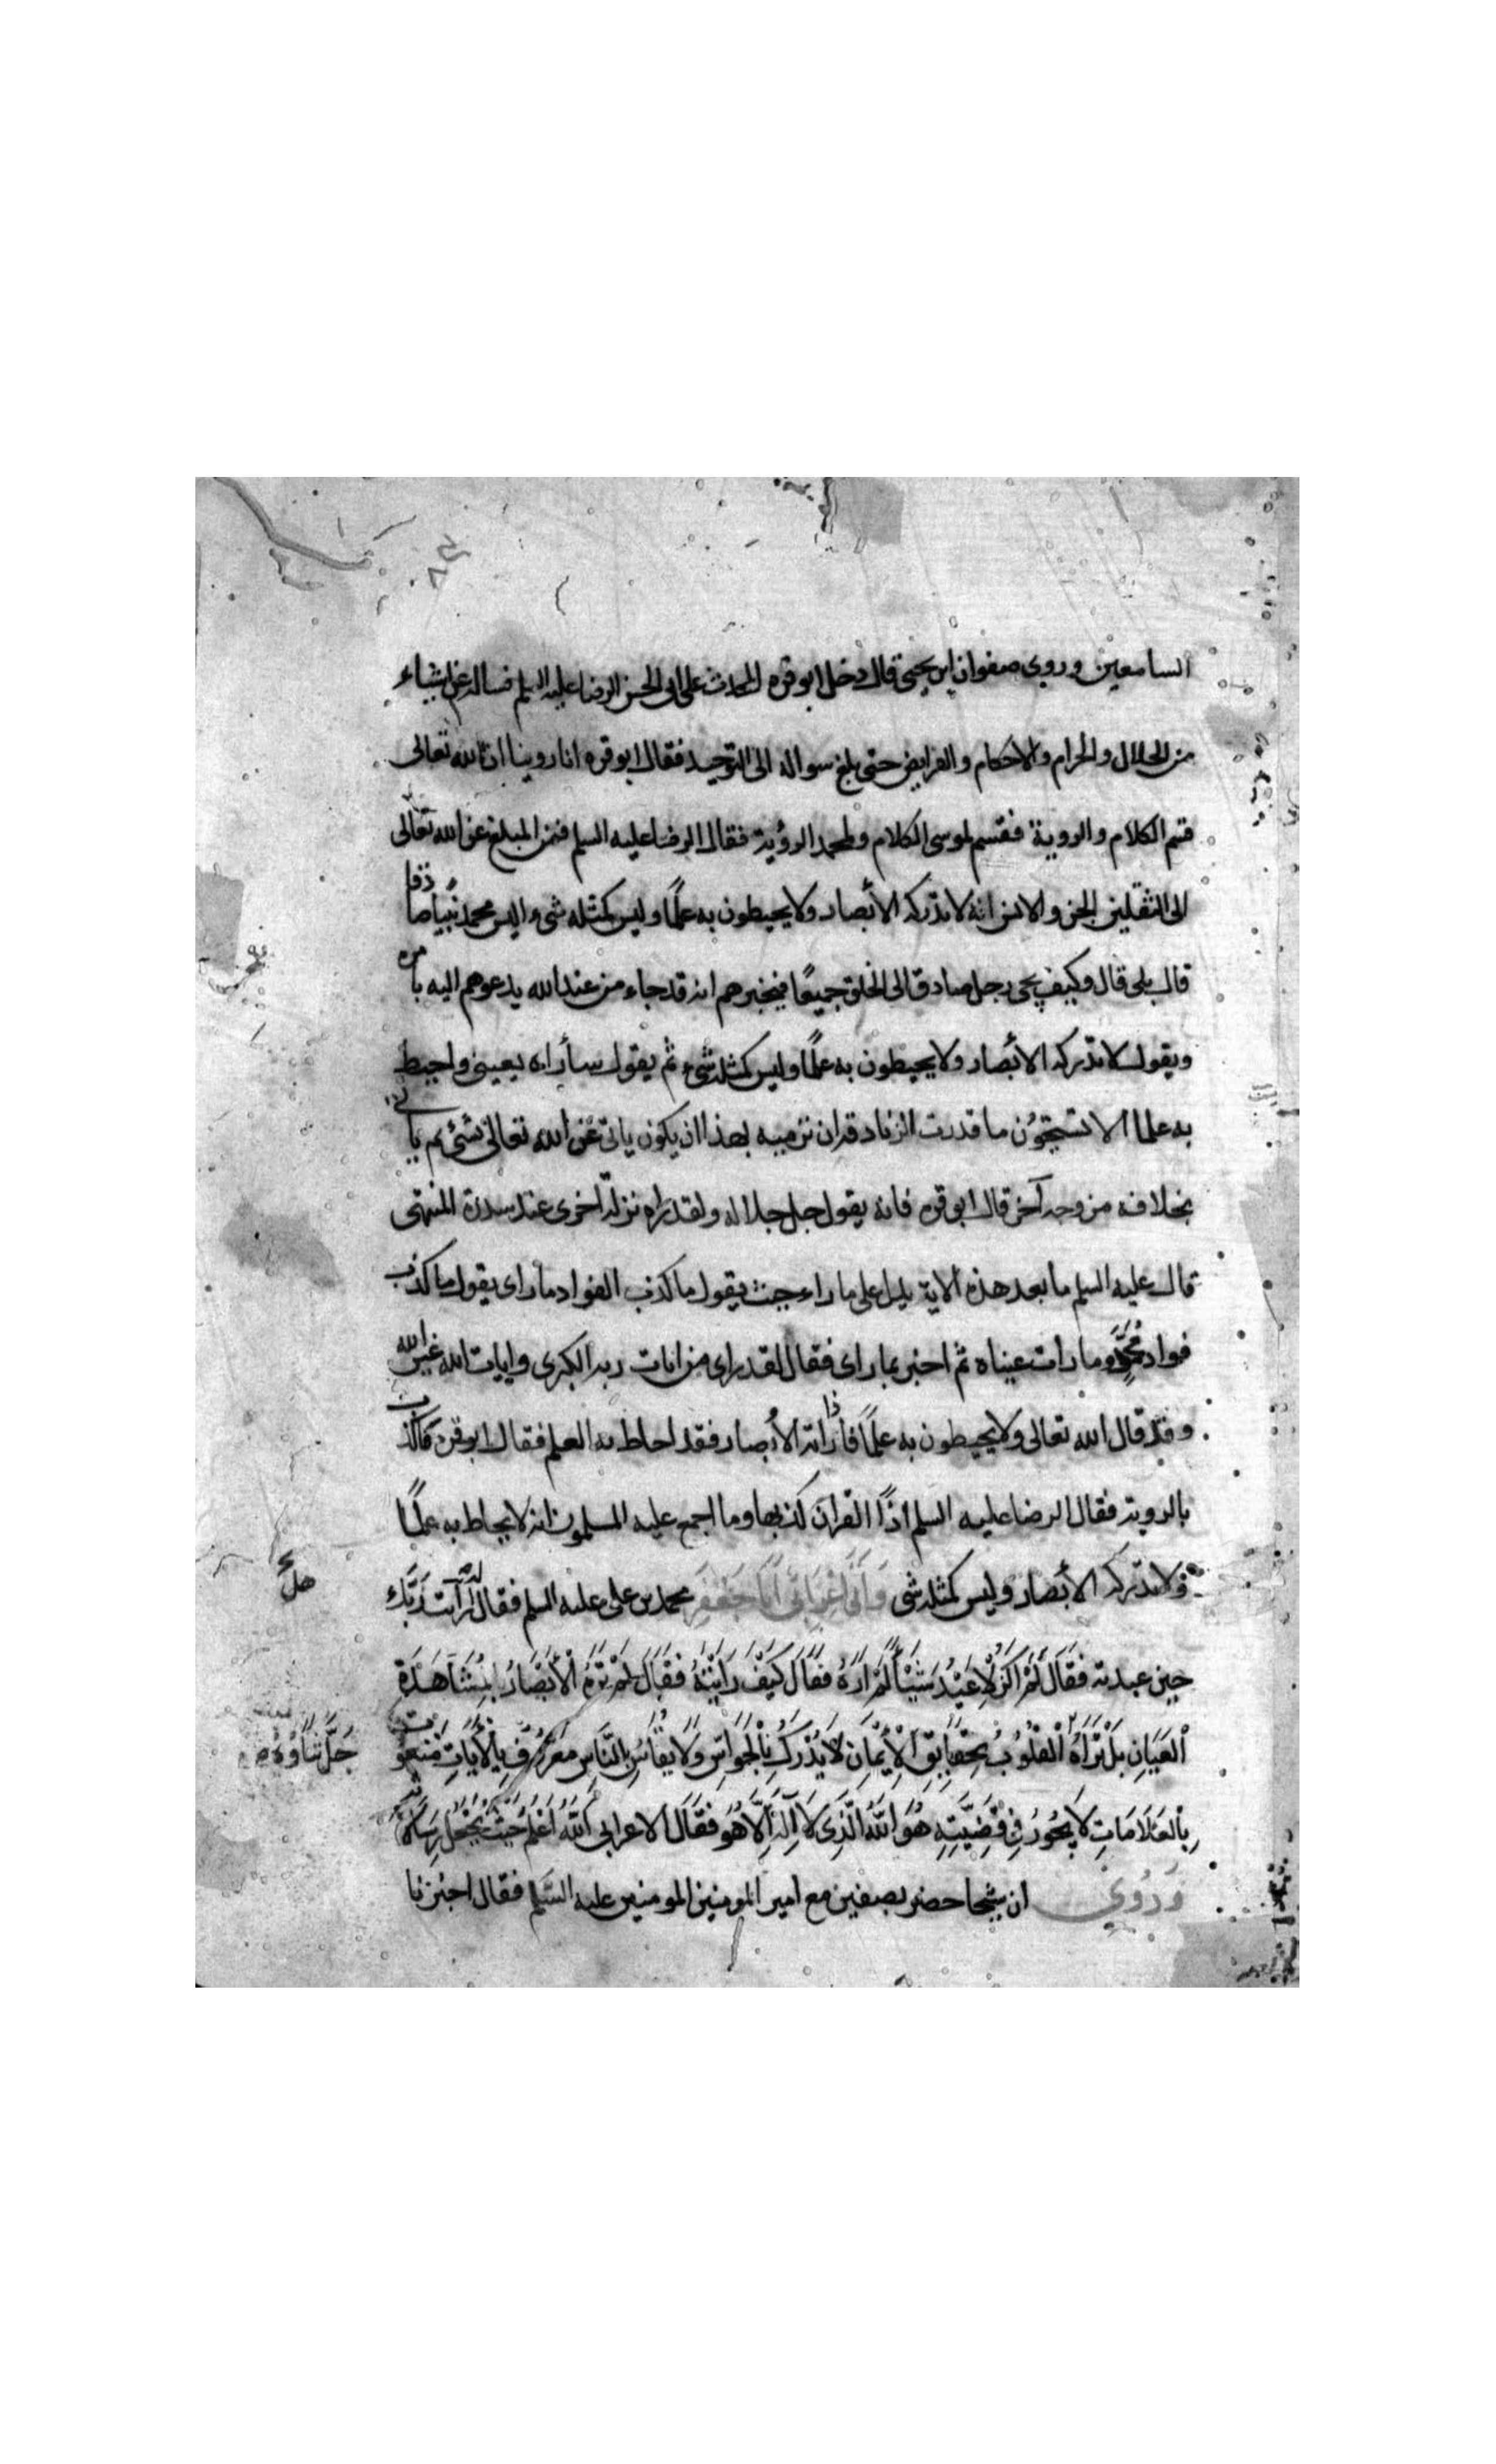 السامعين وروى صفوان ابن يحيى قال دخل ابو قره المحدث على ابى الحسن الرضا عليه السلم فساله عن اشياء
من الحلال والحرام والاحكام والفرايض حتى بلغ سواله الى التوحيد فقال ابو قره انا روينا ان الله تعالى
قسم الكلام والروية فقسم لموسى الكلام ولمحمد الرؤية فقال الرضا عليه السلم فمن المبلغ عن الله تعالى
الى الثقلين الجن والانس انه لا تدركه الأبصار ولا يحيطون به علمًا وليس كمثله شى اليس محمد نبيًا صادقا
قال بلى قال وكيف يجى رجل صادق الى الخلق جميعًا فيخبرهم انه قد جاء من عند الله يدعوهم اليه بامره
ويقول لا تدركه الأبصار ولا يحيطون به علمًا وليس كمثله شىء ثم يقول سأراه بعينى واحيط
به علما الا تستحيون ما قدرت الزنادقه ان ترميه بهذا ان يكون ياتى عن الله تعالى بشئ ثم ياتى
بخلافه من وجه آخر قال ابو قره فانه يقول جل جلاله ولقد راه نزلة اخرى عند سدرة المنتهى
قال عليه السلم ما بعد هذه الاية يدل على ما راه حيث يقول ما كذب الفواد ما راى يقول ما كذب
فواد محمدٍ وما رات عيناه ثم اخبر بما راى فقال لقد راى من ايات ربه الكبرى وايات الله غير الله
وقد قال الله تعالى ولا يحيطون به علمًا فاذا راته الأبصار فقد احاط به العلم فقال ابو قره فاكذب
بالروية فقال الرضا عليه السلم اذًا القران كذبها وما اجمع عليه المسلمون انه لا يحاط به علمًا
ولا تدركه الأبصار وليس كمثله شى وَأَتَى اَعْرَابِىٌّ اَبَا جَعْفَرٍ محمد بن على عليه السلم فقال له أرأيت رَبَّك
حين عبدته فقَالَ لَمْ اَكُنْ لِأَعْبُدَ شَيْئًا لَمْ اَرَهُ فقَالَ كَيْفَ رَايْتَهُ فقَالَ لَمْ تَرَهُ الْأَبْصَارُ بِمُشَاهَدَةِ
الْعَيَانِ بَلْ تَرَاهُ الْقُلُوبُ بِحَقَايِقِ الْأِيْمَانِ لَا يُدْرَكُ بِالْحَوَاسِّ وَلَا يُقَاسُ بِالنَّاسِ مَعْرُوفٌ بِالْأَيَاتِ مَنْعُوتٌ
جَلَّ ثَنَاؤُهُ
بِالْعَلَامَاتِ لَا يَجُورُ فِى قَضِيَّتِهِ هُوَ اللَّهُ الَّذِى لَا آِلَهَ اِلَّا هُوَ فقَالَ الاعرابى اَللَّهُ اَعْلَمُ حَيْثُ يَجْعَلُ رِسَالَاتِهِ
وَرُوِىَ ان شيخا حضر بصفين مع امير المومنين المومنين عليه السّلم فقال اخبرنا